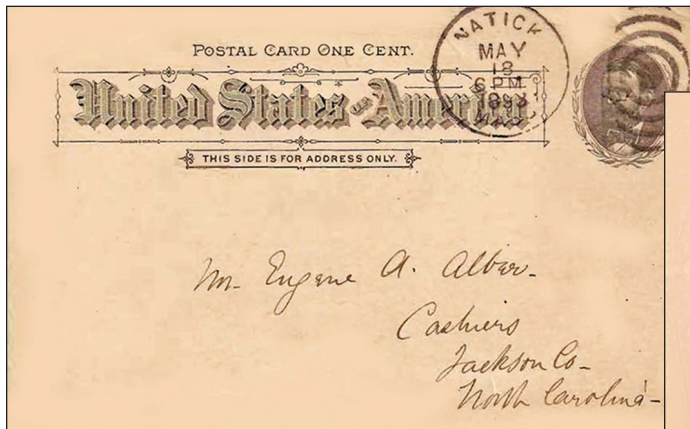 POSTAL CARD ONE CENT.
United States of America
THIS SIDE IS FOR ADDRESS ONLY.
NATICK
MAY
18
6 PM
1893
MASS
Mr. Eugene A.
Cashiers
Jackson Co-
North Carolina-